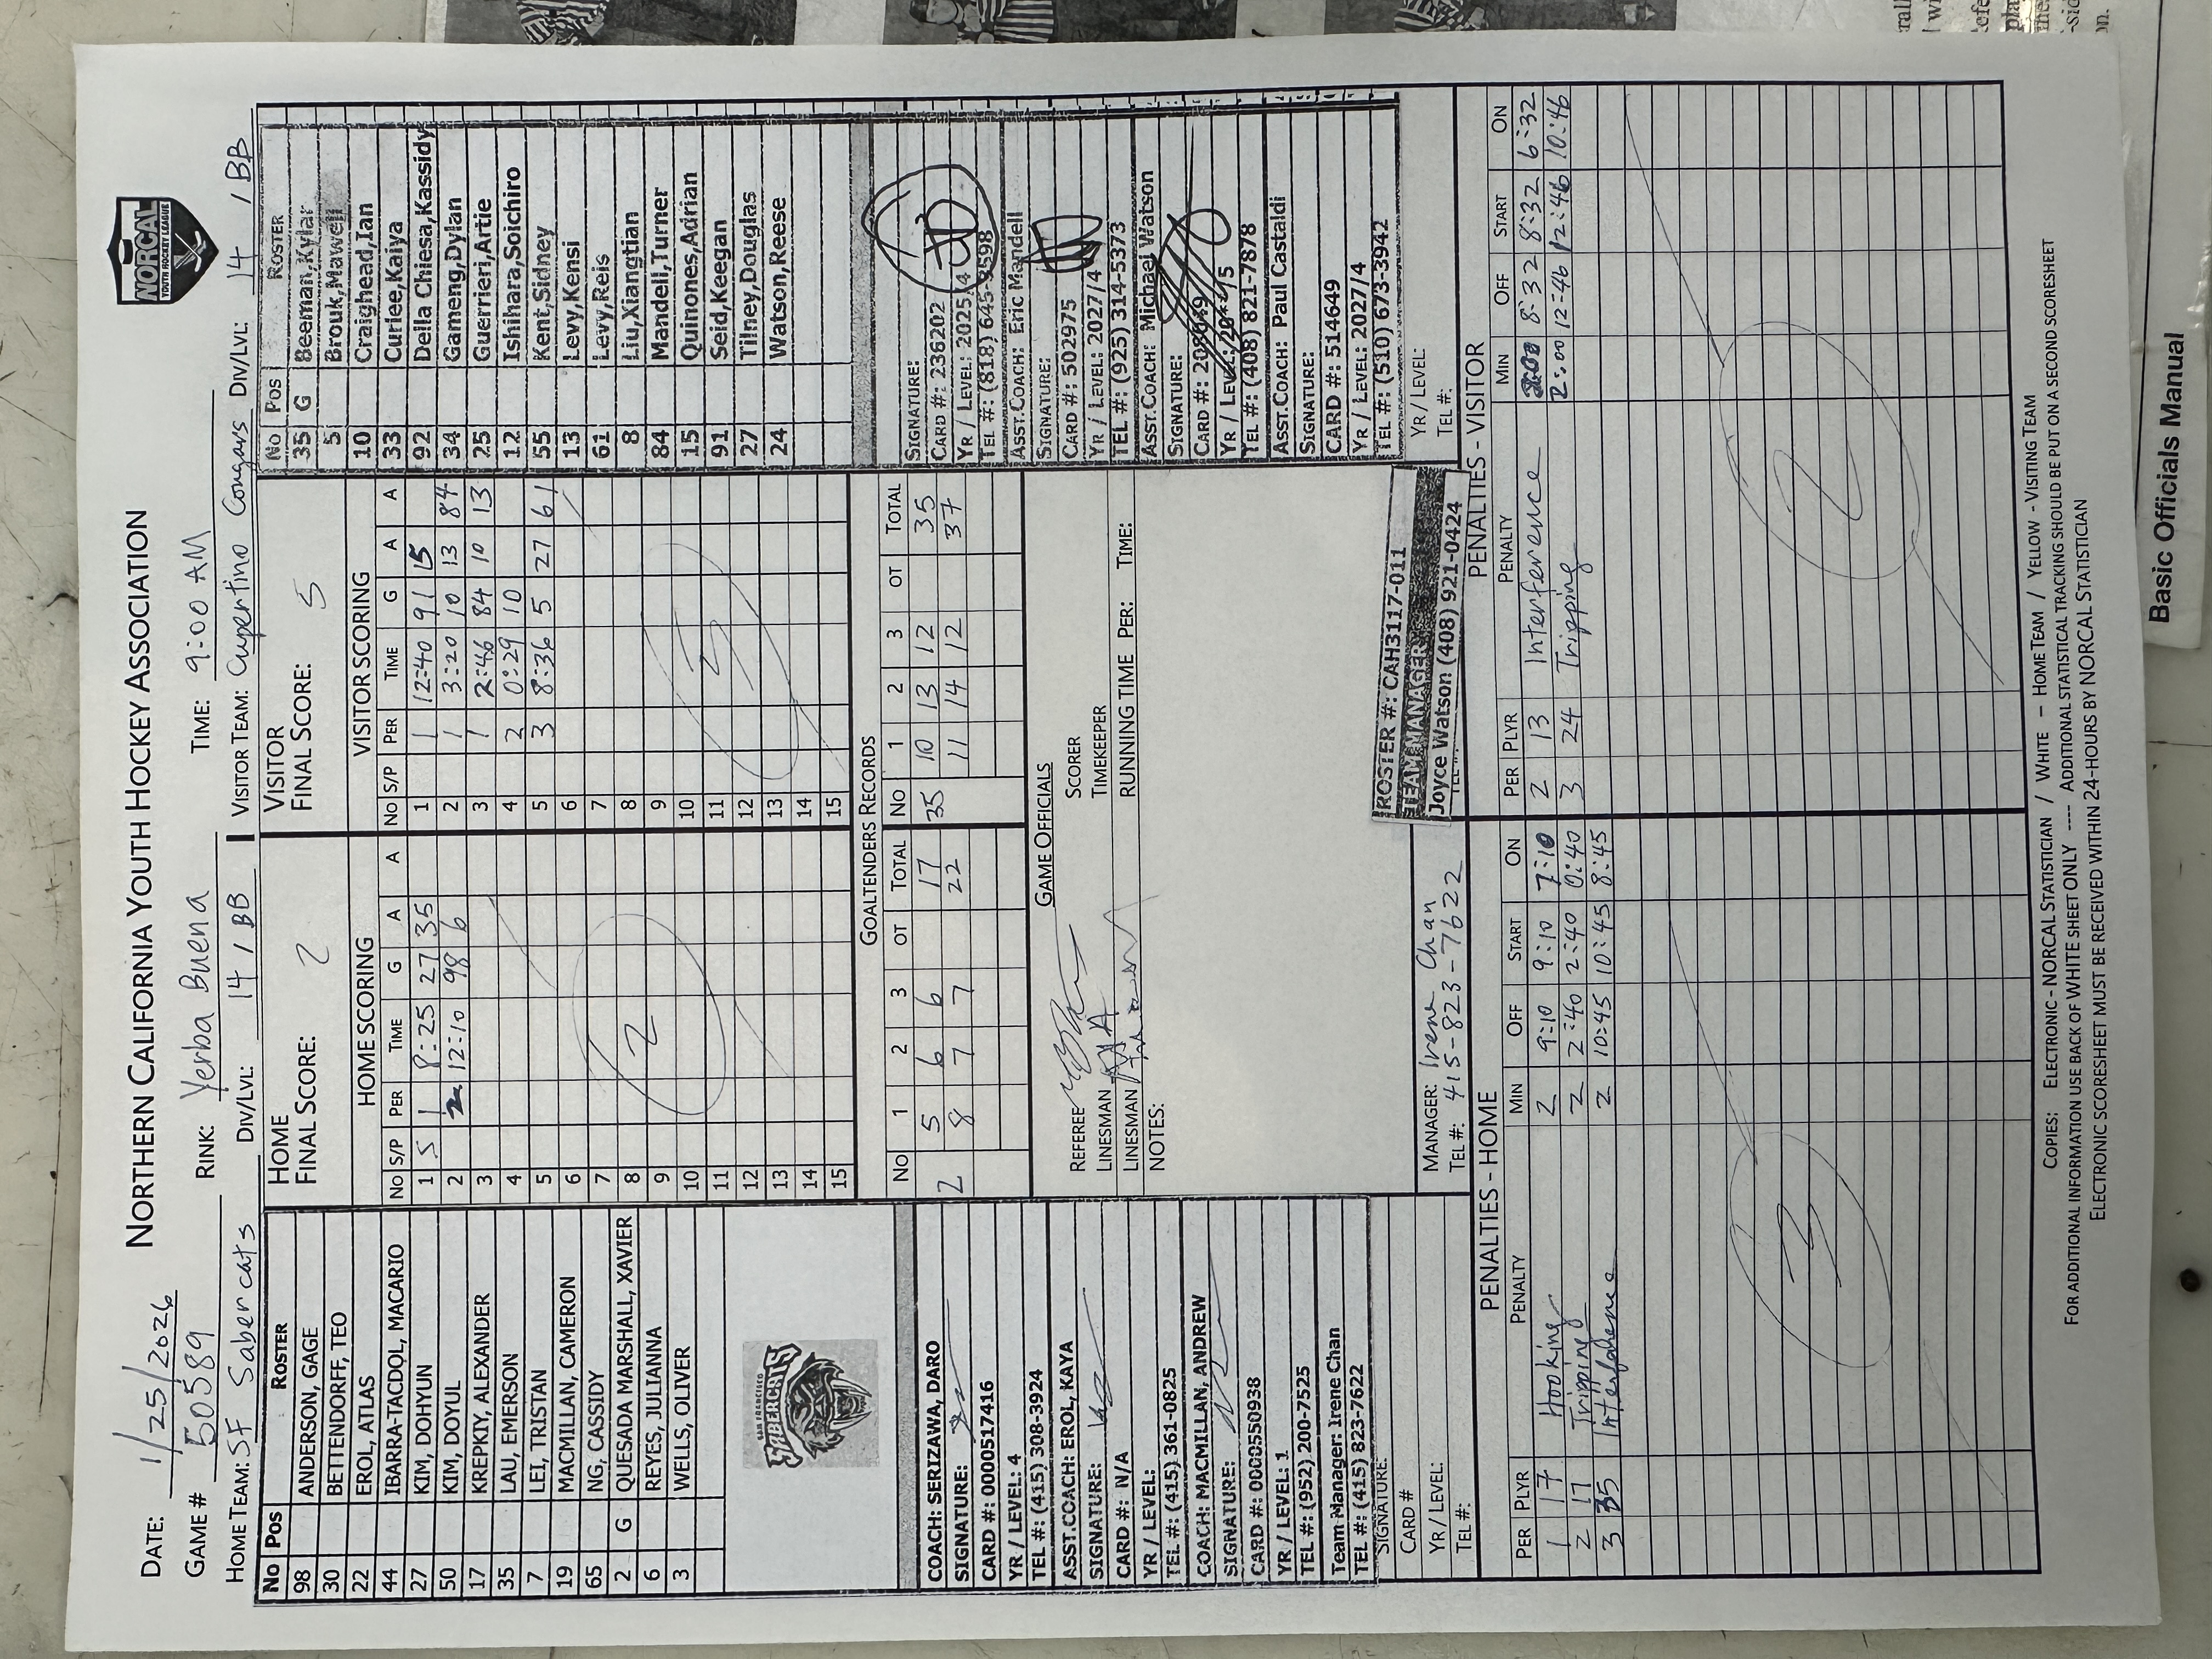 NORTHERN CALIFORNIA YOUTH HOCKEY ASSOCIATION
NORCAL
YOUTH HOCKEY LEAGUE
DATE: 1/25/2026
GAME # 50589 RINK: Yerba Buena TIME: 9:00 AM
HOME TEAM: SF Sabercats DIV/LVL: 14 / BB VISITOR TEAM: Cupertino Cougars DIV/LVL: 14 / BB
No Pos ROSTER
98 ANDERSON, GAGE
30 BETTENDORFF, TEO
22 EROL, ATLAS
44 IBARRA-TACDOL, MACARIO
27 KIM, DOHYUN
50 KIM, DOYUL
17 KREPKIY, ALEXANDER
35 LAU, EMERSON
7 LEI, TRISTAN
19 MACMILLAN, CAMERON
65 NG, CASSIDY
2 G QUESADA MARSHALL, XAVIER
6 REYES, JULIANNA
3 WELLS, OLIVER
SAN FRANCISCO
SABERCATS
COACH: SERIZAWA, DARO
SIGNATURE:
CARD #: 0000517416
YR / LEVEL: 4
TEL #: (415) 308-3924
ASST.COACH: EROL, KAYA
SIGNATURE:
CARD #: N/A
YR / LEVEL:
TEL #: (415) 361-0825
COACH: MACMILLAN, ANDREW
SIGNATURE:
CARD #: 0000550938
YR / LEVEL: 1
TEL #: (952) 200-7525
Team Manager: Irene Chan
TEL #: (415) 823-7622
SIGNATURE:
CARD #
YR / LEVEL:
TEL #:
HOME
FINAL SCORE: 2
HOME SCORING
No S/P PER TIME G A A
1 5 1 8:25 27 35
2 2 12:10 98 6
3
4
5
6
7
8
9
10
11
12
13
14
15
2
VISITOR
FINAL SCORE: 5
VISITOR SCORING
No S/P PER TIME G A A
1 1 12:40 91 15
2 1 3:20 10 13 84
3 1 2:46 84 10 13
4 2 0:29 10
5 3 8:36 5 27 61
6
7
8
9
10
11
12
13
14
15
5
GOALTENDERS RECORDS
No 1 2 3 OT TOTAL No 1 2 3 OT TOTAL
2 5 6 6 17 35 10 13 12 35
8 7 7 22 11 14 12 37
GAME OFFICIALS
REFEREE SCORER
LINESMAN TIMEKEEPER
LINESMAN RUNNING TIME PER: TIME:
NOTES:
MANAGER: Irene Chan
TEL #: 415-823-7622
ROSTER #: CAH3117-011
TEAM MANAGER
Joyce Watson (408) 921-0424
No Pos ROSTER
35 G Beeman,Kylar
5 Brouk,Maxwell
10 Craighead,Ian
33 Curiee,Kaiya
92 Della Chiesa,Kassidy
34 Gameng,Dylan
25 Guerrieri,Artie
12 Ishihara,Soichiro
55 Kent,Sidney
13 Levy,Kensi
61 Levy,Reis
8 Liu,Xiangtian
84 Mandell,Turner
15 Quinones,Adrian
91 Seid,Keegan
27 Tilney,Douglas
24 Watson,Reese
SIGNATURE:
CARD #: 236202
YR / LEVEL: 2025/4
TEL #: (818) 645-9598
ASST.COACH: Eric Mandell
SIGNATURE:
CARD #: 502975
YR / LEVEL: 2027/4
TEL #: (925) 314-5373
ASST.COACH: Michael Watson
SIGNATURE:
CARD #:
YR / LEVEL:
TEL #: (408) 821-7878
ASST.COACH: Paul Castaldi
SIGNATURE:
CARD #: 514649
YR / LEVEL: 2027/4
TEL #: (510) 673-3942
YR / LEVEL:
TEL #:
PENALTIES - HOME
PER PLYR PENALTY MIN OFF START ON
1 17 Hooking 2 9:10 9:10 7:10
2 17 Tripping 2 2:40 2:40 0:40
3 35 Interference 2 10:45 10:45 8:45
3
PENALTIES - VISITOR
PER PLYR PENALTY MIN OFF START ON
2 13 Interference 2:00 8:32 8:32 6:32
3 24 Tripping 2:00 12:46 12:46 10:46
2
COPIES: ELECTRONIC - NORCAL STATISTICIAN / WHITE – HOME TEAM / YELLOW - VISITING TEAM
FOR ADDITIONAL INFORMATION USE BACK OF WHITE SHEET ONLY ---- ADDITIONAL STATISTICAL TRACKING SHOULD BE PUT ON A SECOND SCORESHEET
ELECTRONIC SCORESHEET MUST BE RECEIVED WITHIN 24-HOURS BY NORCAL STATISTICIAN
Basic Officials Manual